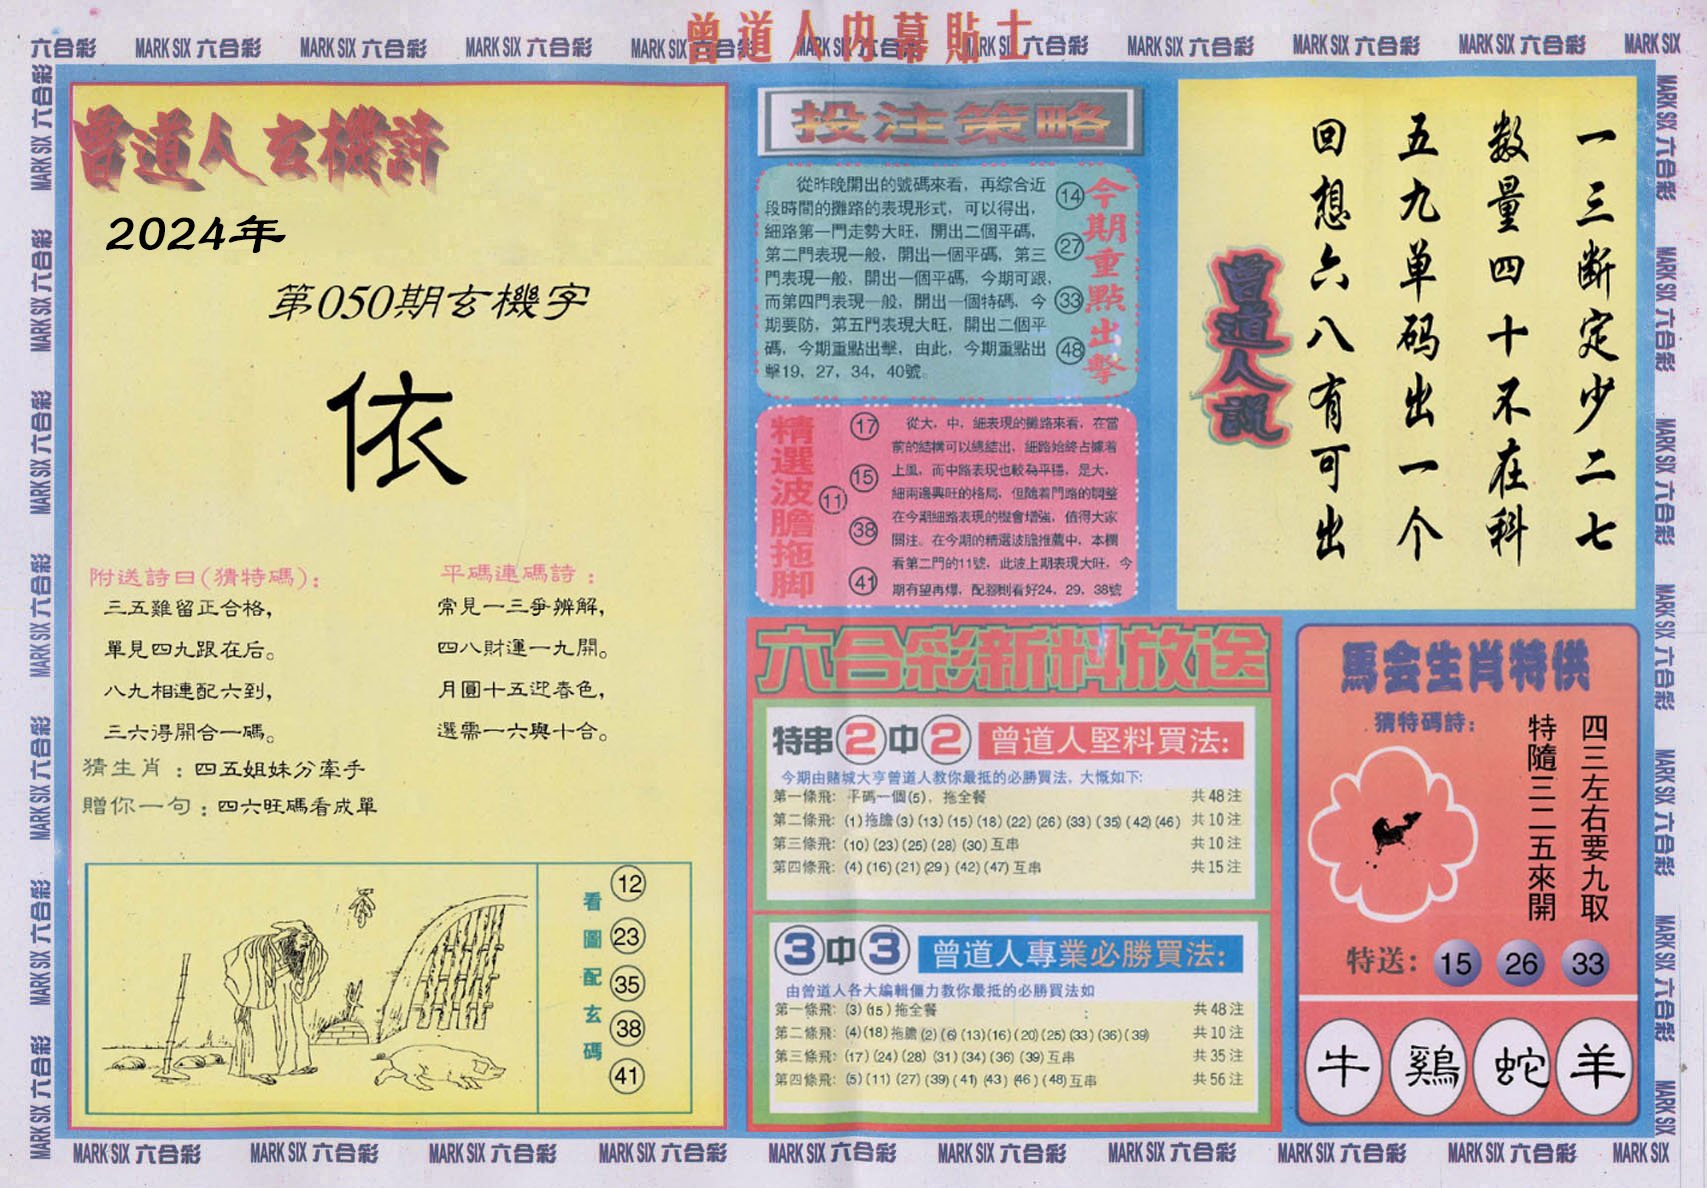 曾道人内幕貼士
六合彩 MARK SIX 六合彩 MARK SIX 六合彩 MARK SIX 六合彩 MARK SIX 六合彩 MARK SIX 六合彩 MARK SIX 六合彩 MARK SIX 六合彩 MARK SIX 六合彩 MARK SIX
曾道人玄機詩
2024年
第050期玄機字
依
附送詩曰(猜特碼):
三五難留正合格,
單見四九跟在后。
八九相連配六到,
三六得開合一碼。
平碼連碼詩:
常見一三爭辨解,
四八財運一九開。
月圓十五迎春色,
選需一六與十合。
猜生肖:四五姐妹分牽手
贈你一句:四六旺碼看成單
看圖配玄碼
12
23
35
38
41
投注策略
從昨晚開出的號碼來看，再綜合近
段時間的攤路的表現形式，可以得出，
細路第一門走勢大旺，開出二個平碼，
第二門表現一般，開出一個平碼，第三
門表現一般，開出一個平碼，今期可跟，
而第四門表現一般，開出一個特碼，今
期要防，第五門表現大旺，開出二個平
碼，今期重點出擊，由此，今期重點出
擊19，27，34，40號。
14
27
33
48
今期重點出擊
精選波膽拖脚
17
15
11
38
41
從大，中，細表現的攤路來看，在當
前的結構可以總結出，細路始終占據着
上風，而中路表現也較為平穩，是大，
細兩邊興旺的格局，但隨着門路的調整
在今期細路表現的機會增強，值得大家
關注。在今期的精選波膽推薦中，本欄
看第二門的11號，此波上期表現大旺，今
期有望再爆，配腳則看好24，29，38號
曾道人說
一三断定少二七
数量四十不在科
五九单码出一个
回想六八有可出
六合彩新料放送
特串2中2 曾道人堅料買法:
今期由賭城大亨曾道人教你最抵的必勝買法，大慨如下:
第一條飛: 平碼一個(5)，拖全餐 共48注
第二條飛: (1)拖膽(3)(13)(15)(18)(22)(26)(33)(35)(42)(46) 共10注
第三條飛: (10)(23)(25)(28)(30)互串 共10注
第四條飛: (4)(16)(21)(29)(42)(47)互串 共15注
3中3 曾道人專業必勝買法:
由曾道人各大編輯僵力教你最抵的必勝買法如
第一條飛: (3)(15)拖全餐 共48注
第二條飛: (4)(18)拖膽(2)(6)(13)(16)(20)(25)(33)(36)(39) 共10注
第三條飛: (17)(24)(28)(31)(34)(36)(39)互串 共35注
第四條飛: (5)(11)(27)(39)(41)(43)(46)(48)互串 共56注
馬会生肖特供
猜特碼詩:
四三左右要九取
特隨三二五來開
特送: 15 26 33
牛 鷄 蛇 羊
MARK SIX 六合彩 MARK SIX 六合彩 MARK SIX 六合彩 MARK SIX 六合彩 MARK SIX 六合彩 MARK SIX 六合彩 MARK SIX 六合彩 MARK SIX 六合彩 MARK SIX 六合彩 MARK SIX